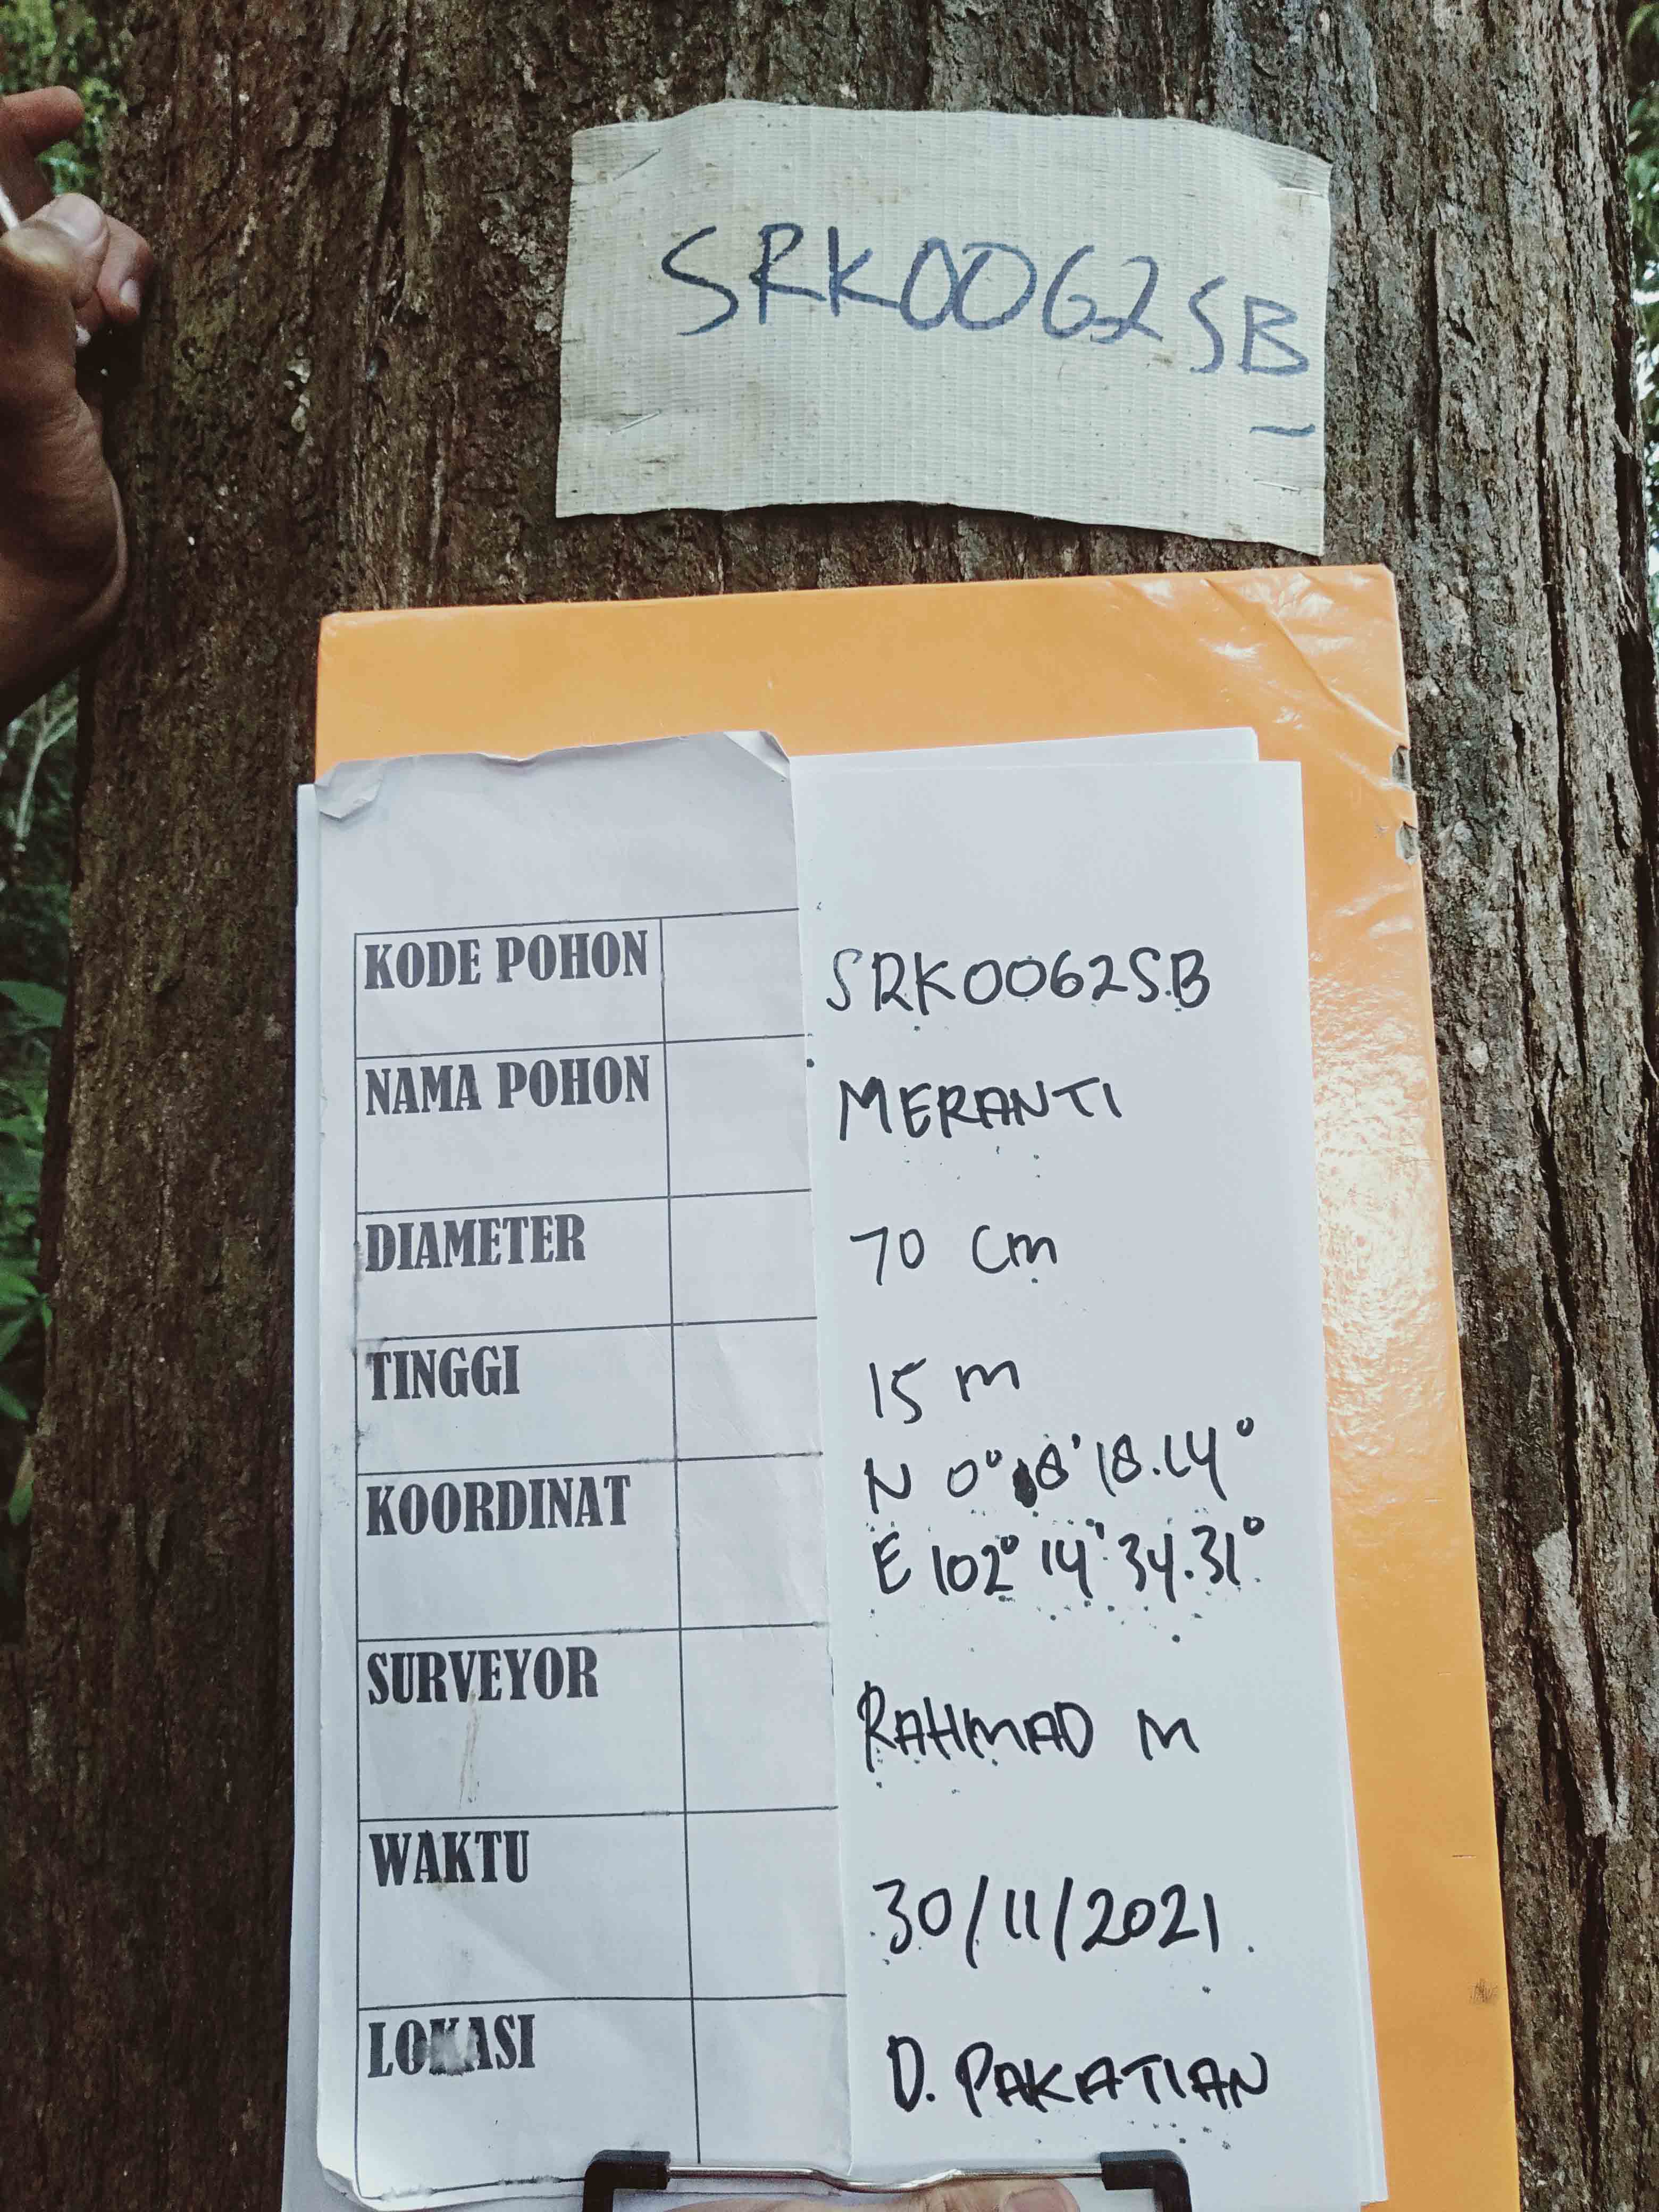 SRK0062SB
KODE POHON SRK0062SB
NAMA POHON MERANTI
DIAMETER 70 cm
TINGGI 15 m
KOORDINAT N 0° 8' 18.14°
E 102° 14' 34.31°
SURVEYOR RAHMAD M
WAKTU 30/11/2021
LOKASI D. PAKATIAN